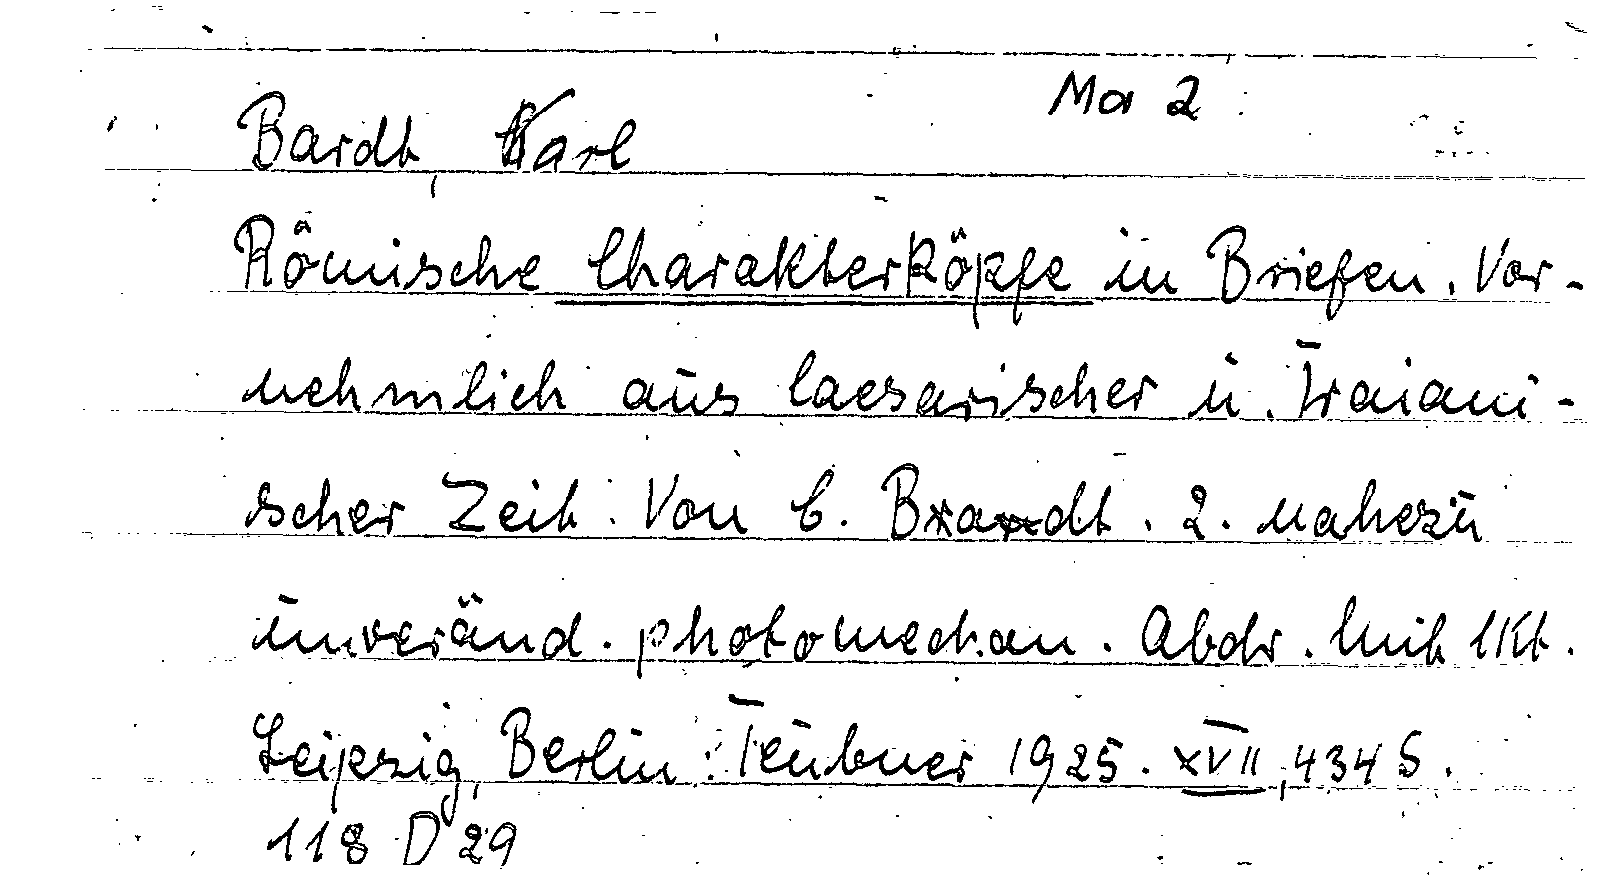 Ma 2
Bardt, Karl
Römische Charakterköpfe in Briefen. Vor-
nehmlich aus Caesarischer u. Traiani-
scher Zeit. Von C. Bardt. 2. nahezu
unveränd. photomechan. Abdr. Mit 1 Kt.
Leipzig, Berlin: Teubner 1925. XVII, 434 S.
118 D 29